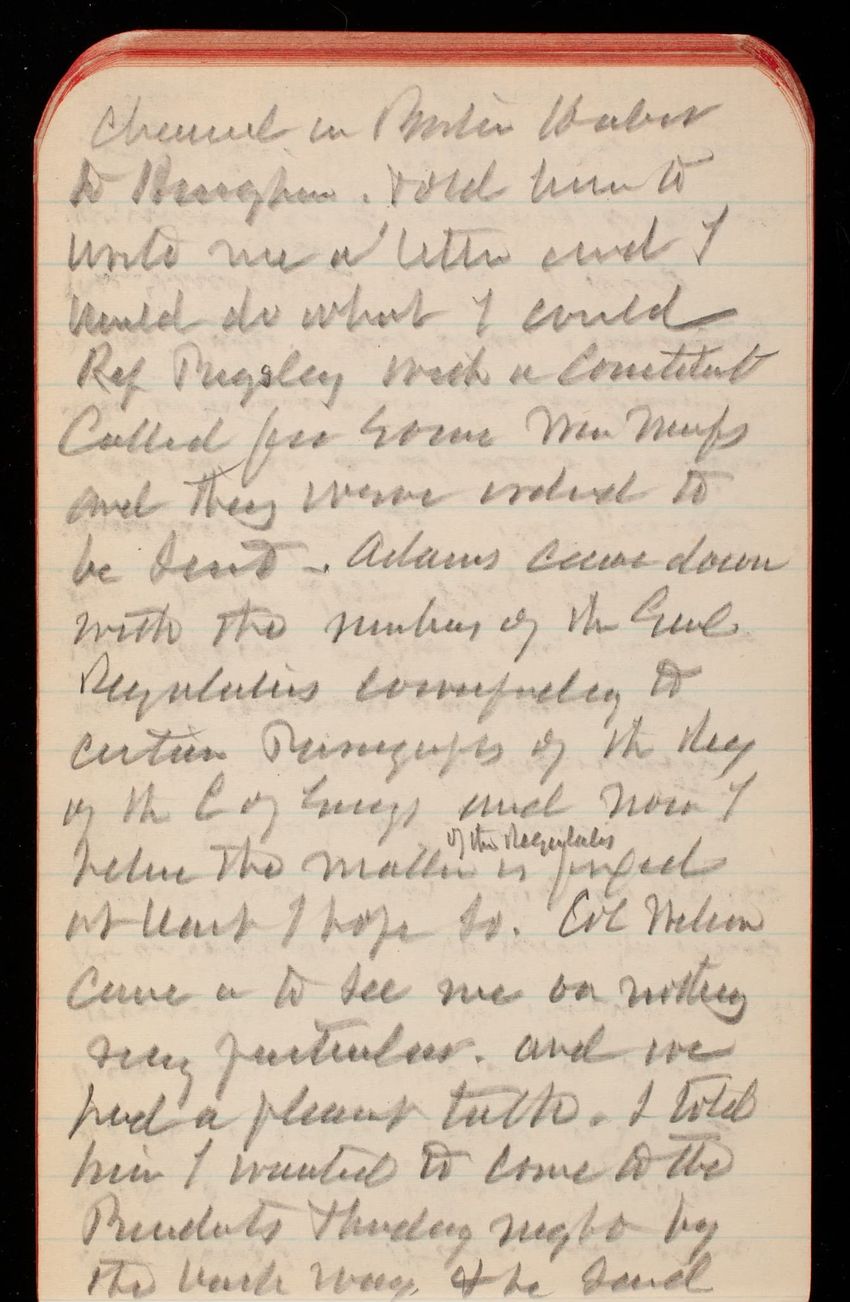 Channel in Boston Harbor
to Bingham. I told him to
write me a letter and I
would do what I could
Rep Pugsley with a Constitut
Called for some
and they were ordered to
be sent -. Adams came down
with the numbers of the Genl
Regulations corresponding to
certain Paragraphs of the Reg
of the C of Engs and now I
believe the matter of the Regulations is fixed
at least I hope so. Col
Came in to see me on nothing
very particular. and we
had a pleasant talk. I told
him I wanted to come to the
Presidents Thursday night by
the back way & he said